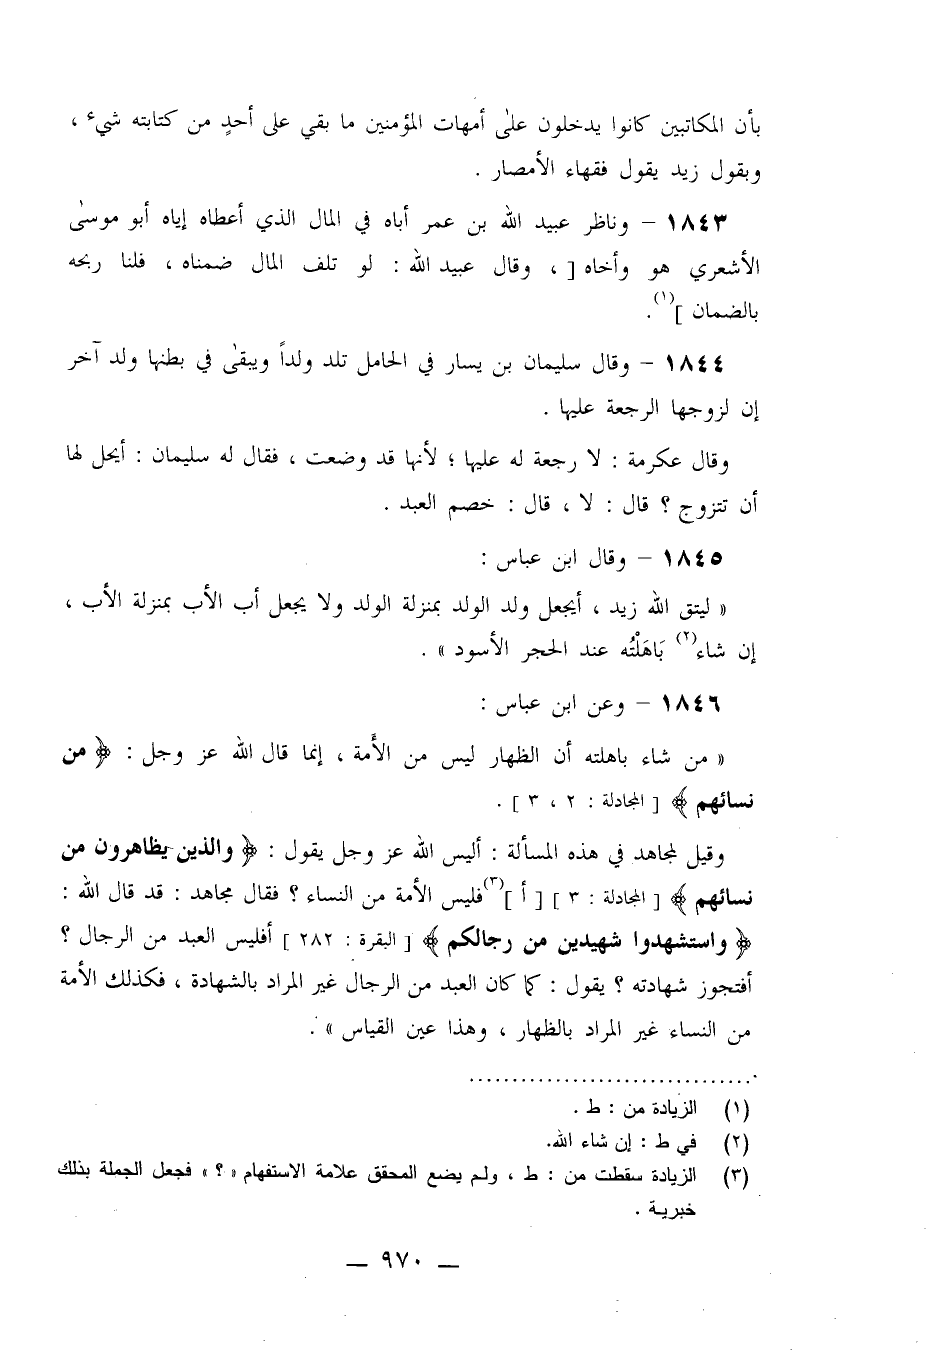 بأن المكاتبين كانوا يدخلون علىٰ أمهات المؤمنين ما بقي على أحدٍ من كتابته شيء ،
وبقول زيد يقول فقهاء الأمصار .
١٨٤٣ – وناظر عبيد الله بن عمر أباه في المال الذي أعطاه إياه أبو موسىٰ
الأشعري هو وأخاه [ ، وقال عبيد الله : لو تلف المال ضمناه ، فلنا ربحه
بالضمان ](١).
١٨٤٤ – وقال سليمان بن يسار في الحامل تلد ولداً ويبقىٰ في بطنها ولد آخر
إن لزوجها الرجعة عليها .
وقال عكرمة : لا رجعة له عليها ؛ لأنها قد وضعت ، فقال له سليمان : أيحل لها
أن تتزوج ؟ قال : لا ، قال : خصم العبد .
١٨٤٥ – وقال ابن عباس :
« ليتق الله زيد ، أيجعل ولد الولد بمنزلة الولد ولا يجعل أب الأب بمنزلة الأب ،
إن شاء(٢) بَاهَلْتُه عند الحجر الأسود » .
١٨٤٦ – وعن ابن عباس :
« من شاء باهلته أن الظهار ليس من الأَمة ، إنما قال الله عز وجل : ﴿ من
نسائهم ﴾ [ المجادلة : ٢ ، ٣ ] .
وقيل لمجاهد في هذه المسألة : أليس الله عز وجل يقول : ﴿ والذين يظاهرون من
نسائهم ﴾ [ المجادلة : ٣ ] [ أ ](٣)فليس الأمة من النساء ؟ فقال مجاهد : قد قال الله :
﴿ واستشهدوا شهيدين من رجالكم ﴾ [ البقرة : ٢٨٢ ] أفليس العبد من الرجال ؟
أفتجوز شهادته ؟ يقول : كما كان العبد من الرجال غير المراد بالشهادة ، فكذلك الأمة
من النساء غير المراد بالظهار ، وهذا عين القياس » .
(١) الزيادة من : ط .
(٢) في ط : إن شاء الله.
(٣) الزيادة سقطت من : ط ، ولم يضع المحقق علامة الاستفهام « ؟ » فجعل الجملة بذلك
خبرية .
— ٩٧٠ —